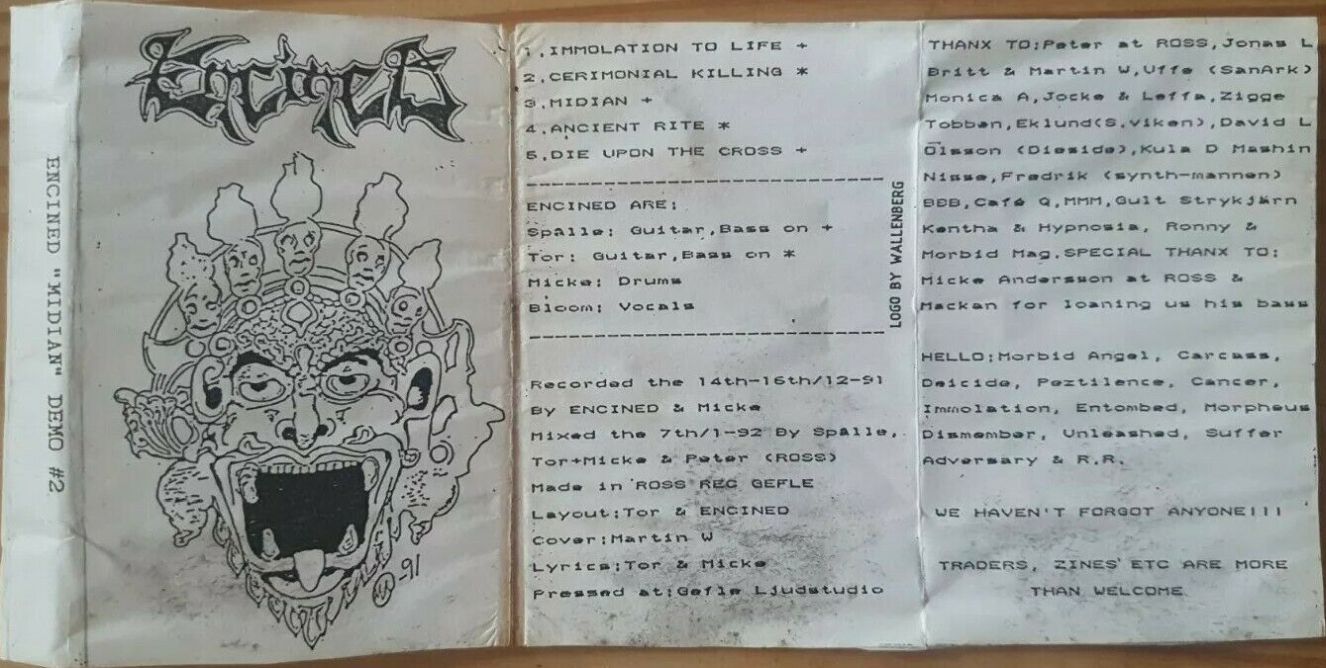 ENCINED "MIDIAN" DEMO #2
Encined
-91
1.IMMOLATION TO LIFE +
2.CERIMONIAL KILLING *
3.MIDIAN +
4.ANCIENT RITE *
5.DIE UPON THE CROSS +
ENCINED ARE:
Spålle: Guitar,Bass on +
Tor: Guitar,Bass on *
Micke: Drums
Bloom: Vocals
Recorded the 14th-16th/12-91
By ENCINED & Micke
Mixed the 7th/1-92 By Spålle,
Tor+Micke & Peter (ROSS)
Made in ROSS REC GEFLE
Layout:Tor & ENCINED
Cover:Martin W
Lyrics:Tor & Micke
Pressed at:Gefle Ljudstudio
LOGO BY WALLENBERG
THANX TO:Peter at ROSS,Jonas L
Britt & Martin W,Uffe (SanArk)
Monica A,Jocke & Leffa,Zigge
Tobban,Eklund(S.viken),David L
Olsson (Dieside),Kula D Mashin
Nisse,Fredrik (synth-mannen)
BBB,Café Q,MMM,Gult Strykjärn
Kentha & Hypnosia, Ronny &
Morbid Mag.SPECIAL THANX TO:
Micke Andersson at ROSS &
Mackan for loaning us his bass
HELLO:Morbid Angel, Carcass,
Deicide, Peztilence, Cancer,
Immolation, Entombed, Morpheus
Dismember, Unleashed, Suffer
Adversary & R.R.
WE HAVEN'T FORGOT ANYONE!!!
TRADERS, ZINES ETC ARE MORE
THAN WELCOME